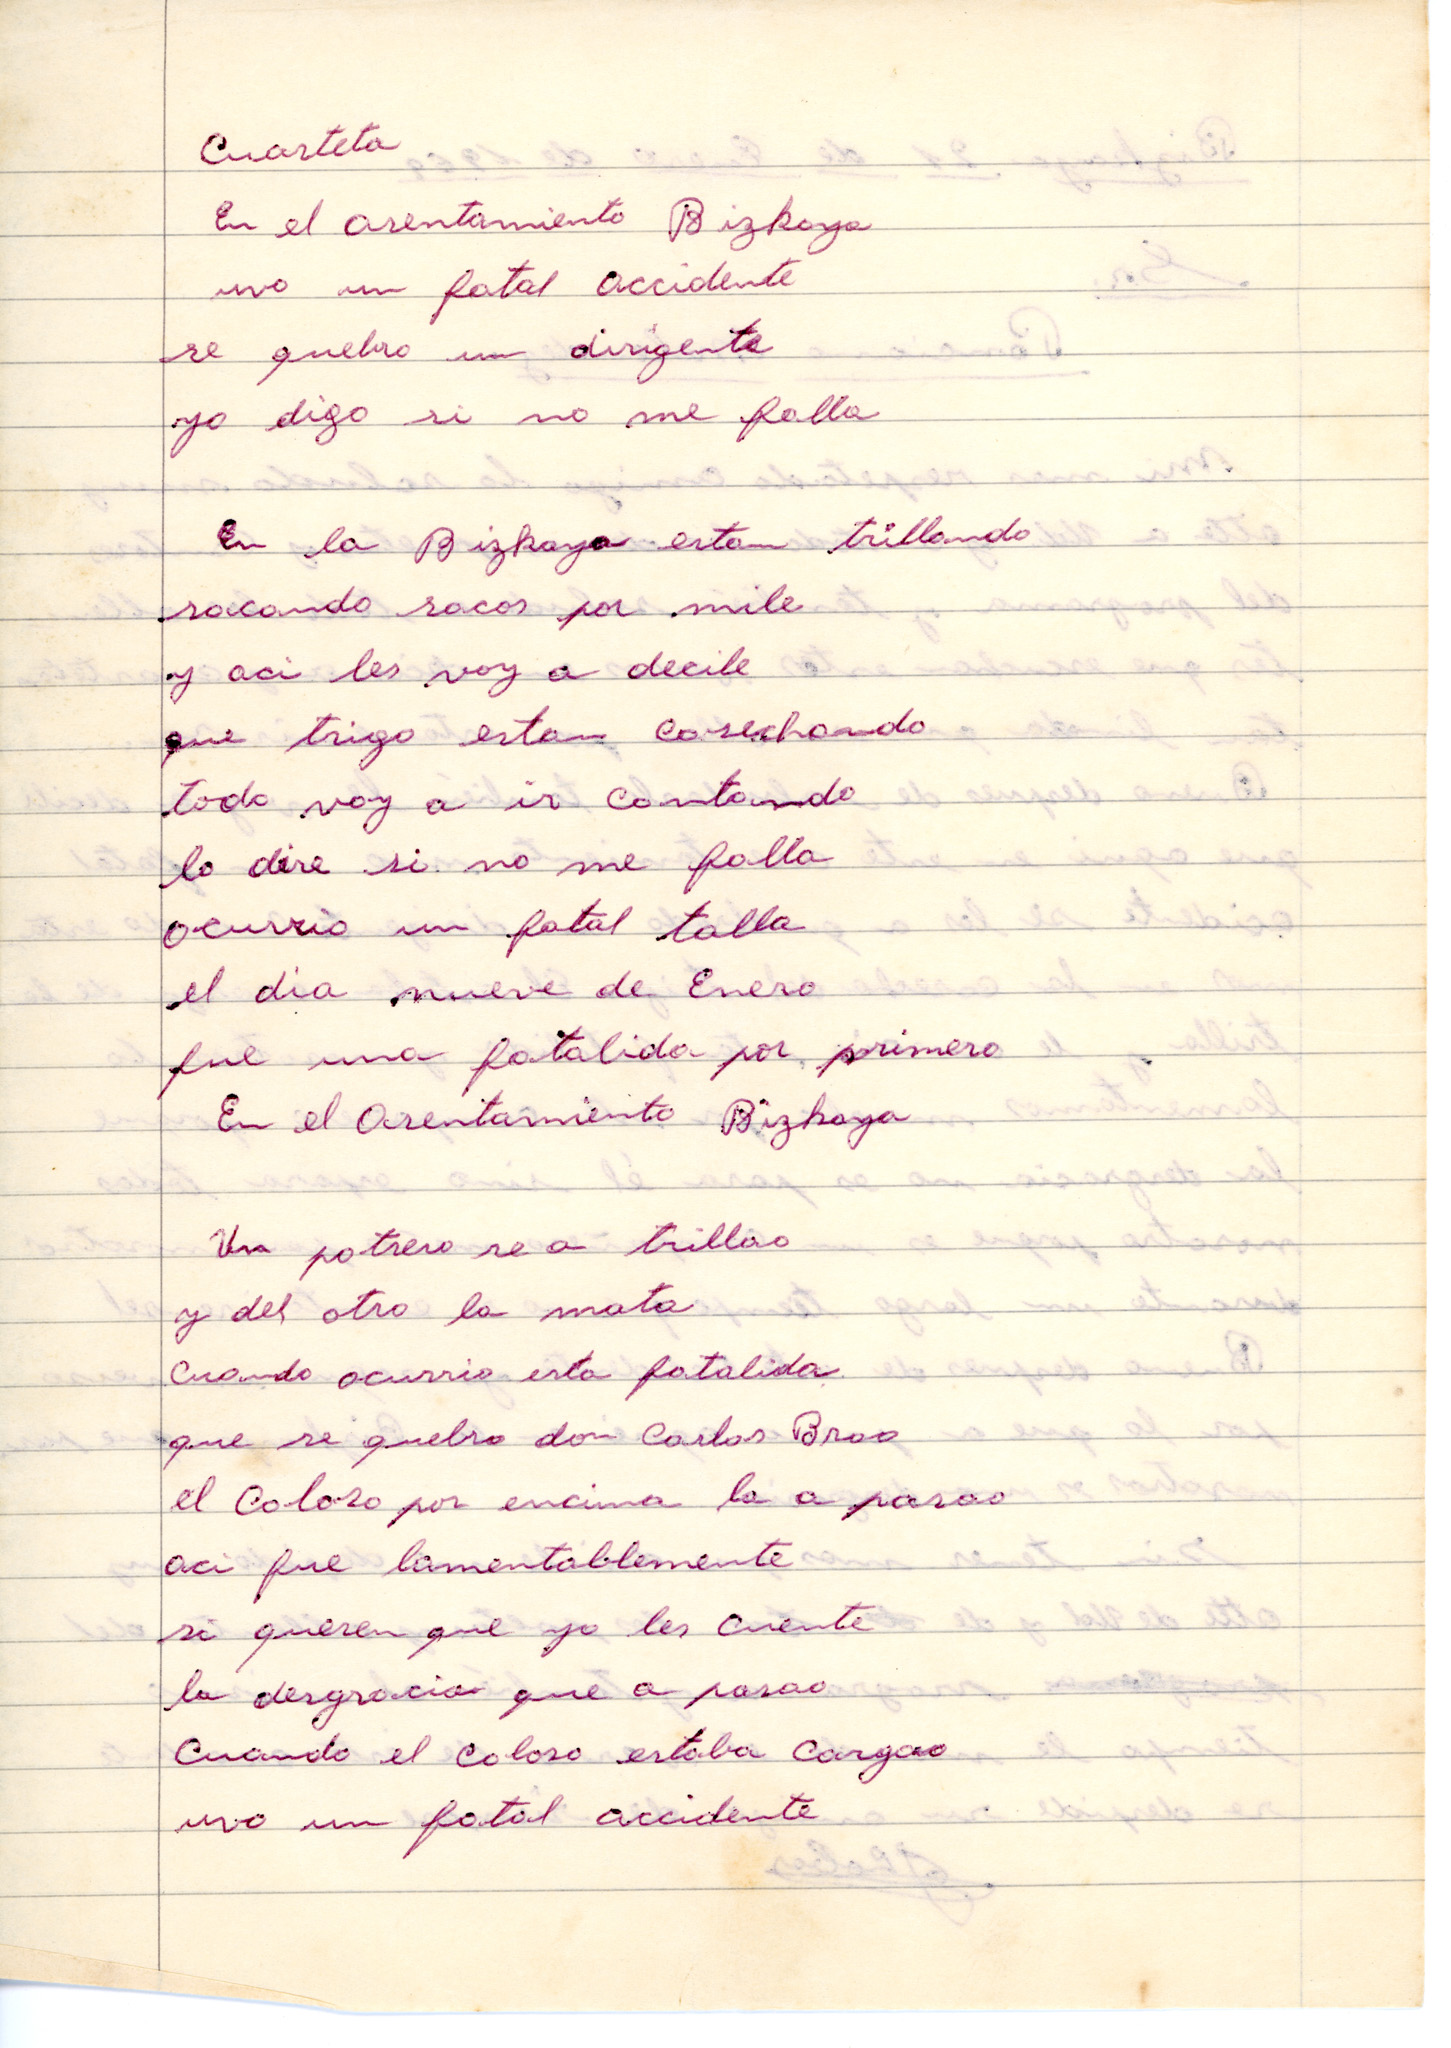 Cuarteta
En el asentamiento Bizkaya
uvo un fatal accidente
se quebro un dirigente
yo digo si no me falla
En la Bizkaya estan trillando
sacando sacos por mile
y aci les voy a decile
que trigo estan cosechando
todo voy a ir contando
lo dire si no me falla
ocurrio un fatal talla
el dia nueve de Enero
fue una fatalida por primero
En el Asentamiento Bizkaya
Un potrero se a trillao
y del otro la mata
cuando ocurrio esta fatalida
que se quebro don Carlos Brao
el Coloso por encima la a pasao
aci fue lamentablemente
si queren que yo les cuente
la desgracia que a pasao
Cuando el coloso estaba Cargao
uvo un fatal accidente